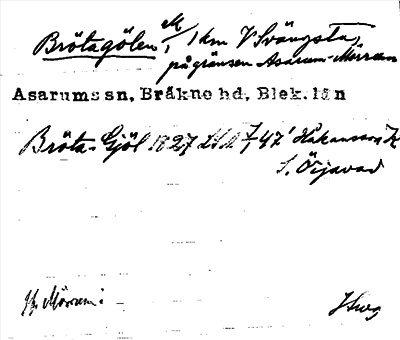 Brötagölen, M, 1 km V Svängsta,
på gränsen Asarum-Mörrum
Asarums sn, Bräkne hd, Blek. län
Bröta-Gjöl 1827 Håkansson K
S. Öijavad
Jfr Mörrum: